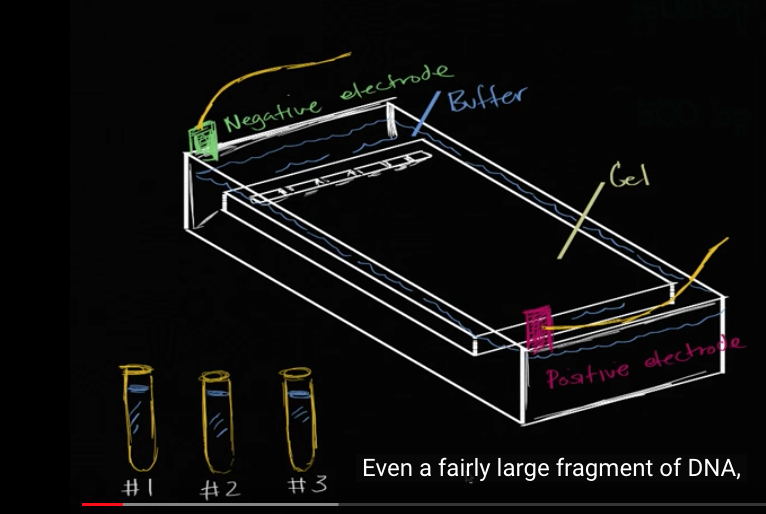 Negative electrode
Buffer
Gel
Positive electrode
#1
#2
#3
Even a fairly large fragment of DNA,